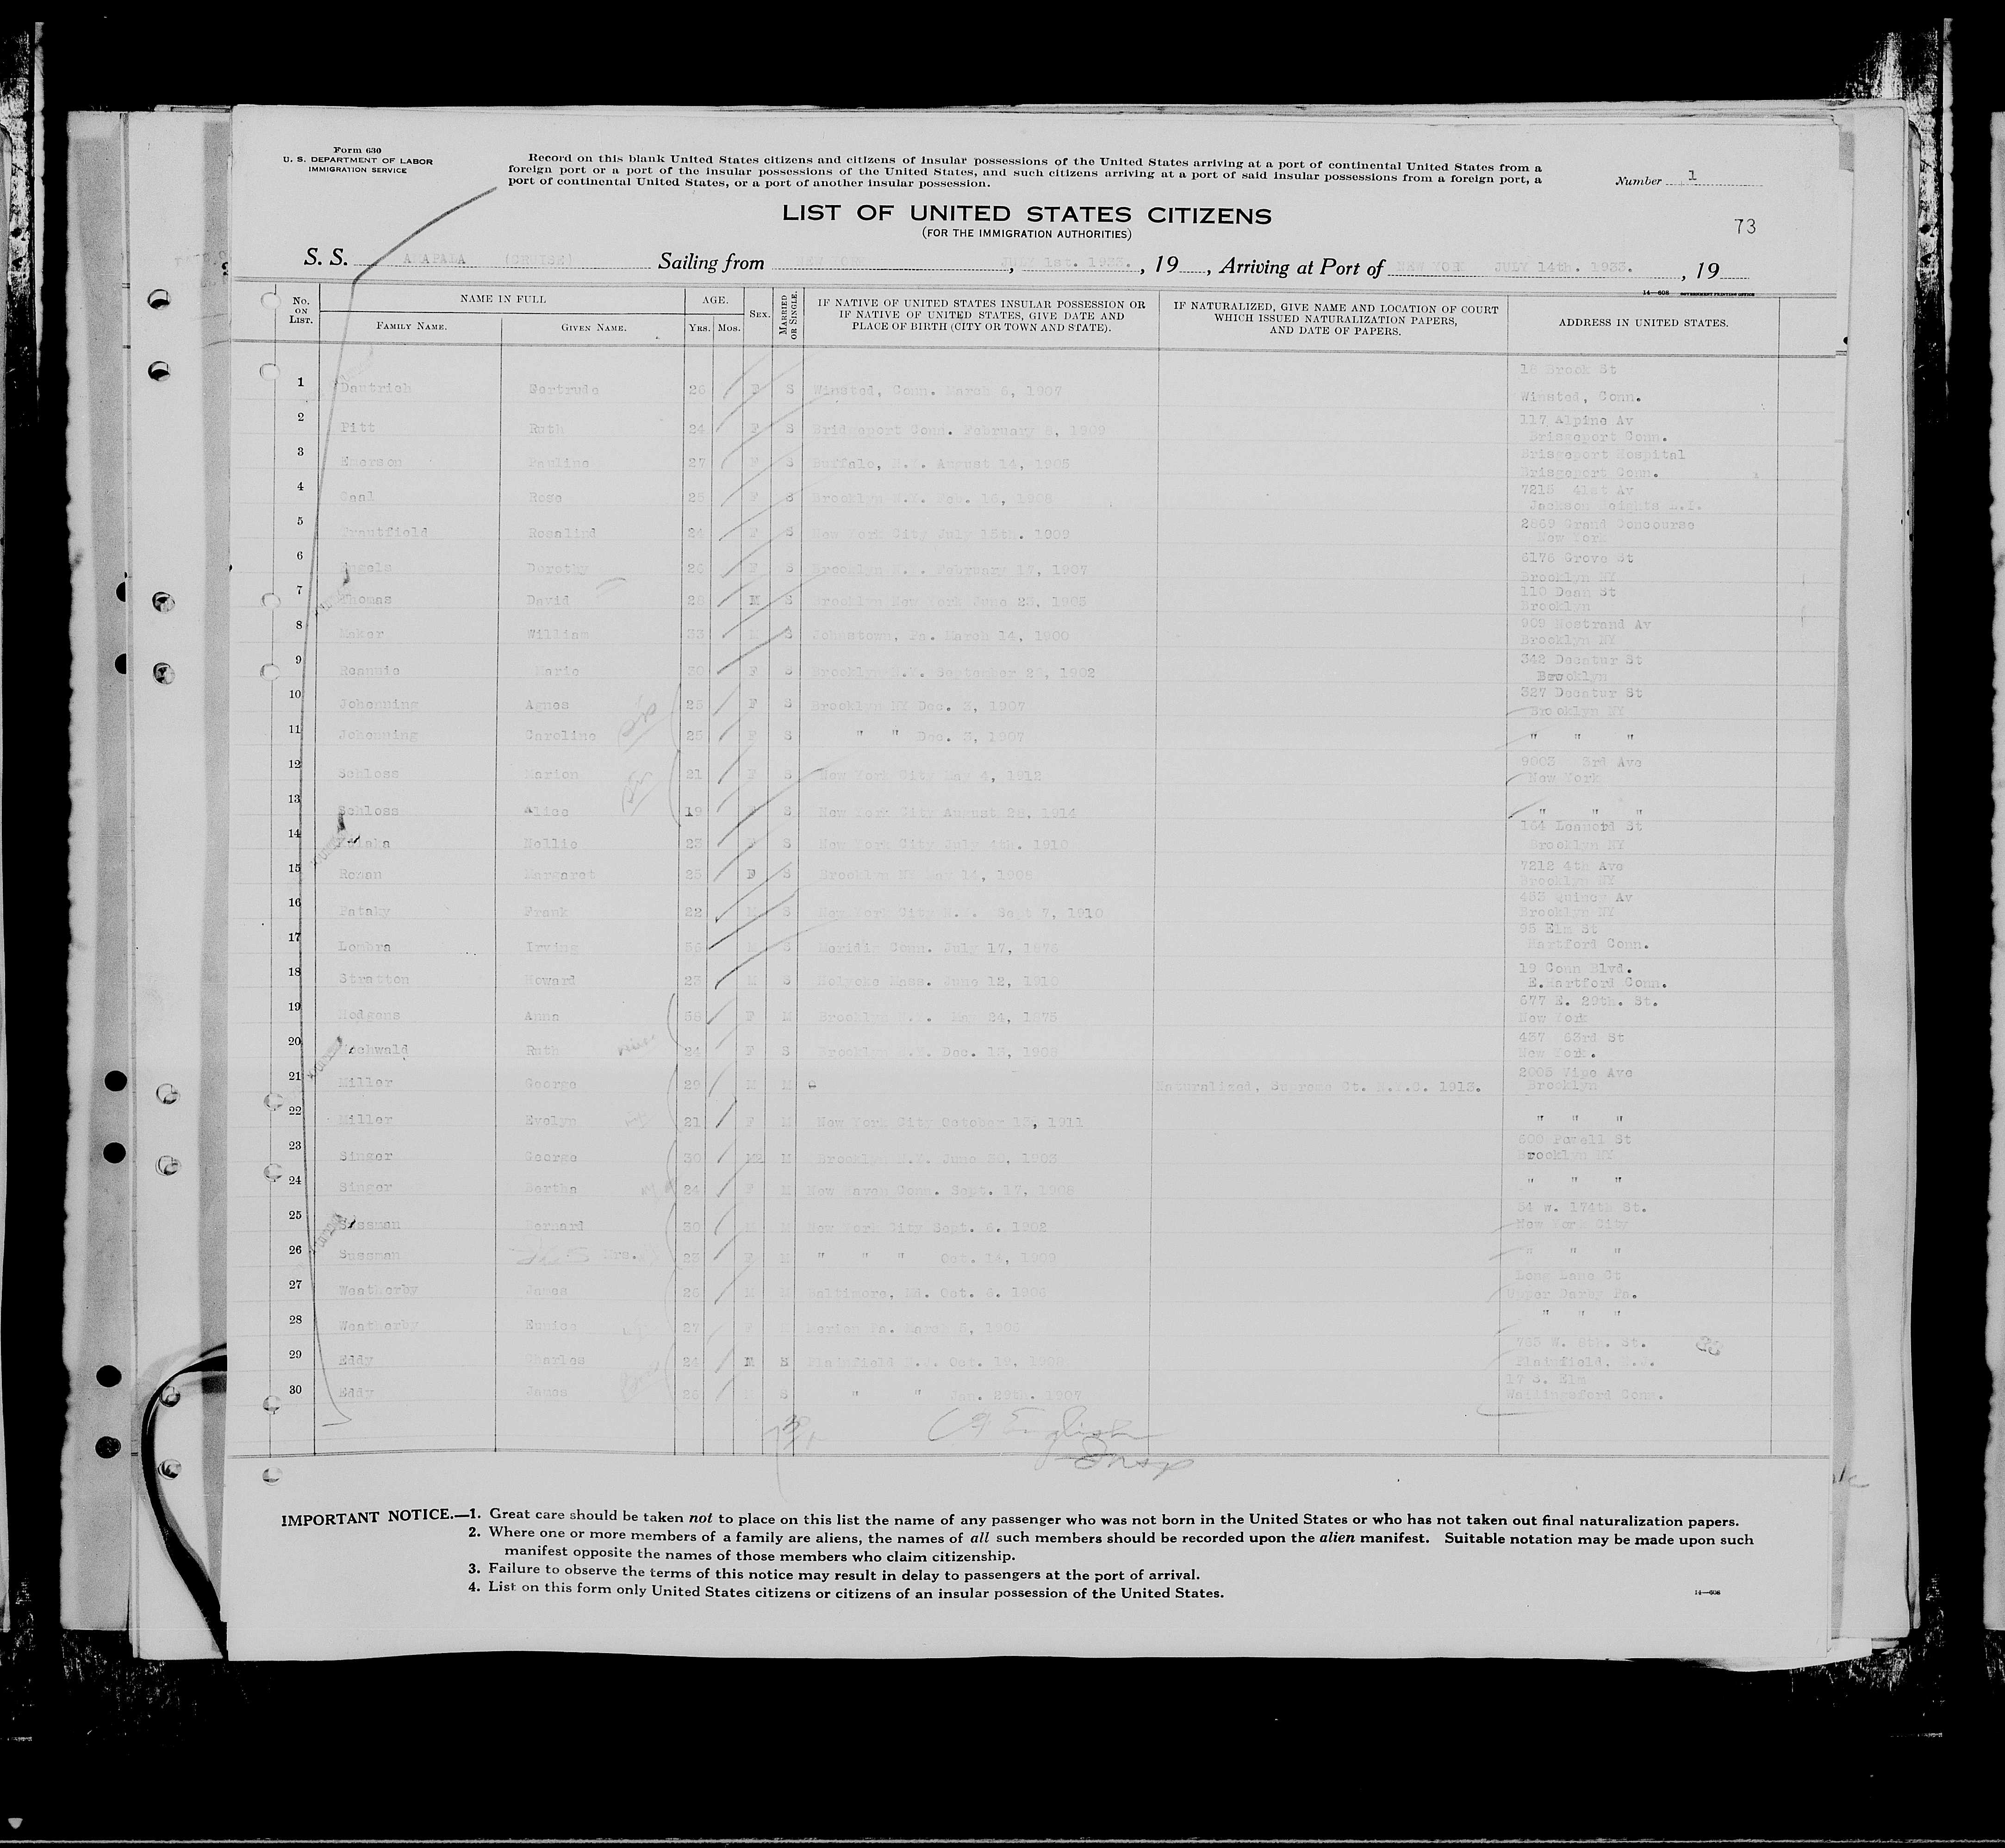 Form 630
U. S. DEPARTMENT OF LABOR
IMMIGRATION SERVICE
Record on this blank United States citizens and citizens of insular possessions of the United States arriving at a port of continental United States from a
foreign port or a port of the insular possessions of the United States, and such citizens arriving at a port of said insular possessions from a foreign port, a
port of continental United States, or a port of another insular possession.
Number 1
LIST OF UNITED STATES CITIZENS
(FOR THE IMMIGRATION AUTHORITIES)
73
S. S. (CRUISE) Sailing from NEW YORK, JULY 1st. 1933., 19, Arriving at Port of NEW YORK JULY 14th. 1933., 19
14—608 GOVERNMENT PRINTING OFFICE
No. ON LIST. NAME IN FULL AGE. SEX. MARRIED OR SINGLE. IF NATIVE OF UNITED STATES INSULAR POSSESSION OR IF NATIVE OF UNITED STATES, GIVE DATE AND PLACE OF BIRTH (CITY OR TOWN AND STATE). IF NATURALIZED, GIVE NAME AND LOCATION OF COURT WHICH ISSUED NATURALIZATION PAPERS, AND DATE OF PAPERS. ADDRESS IN UNITED STATES.
FAMILY NAME. GIVEN NAME. YRS. MOS.
18 Brook St
1 Dautrich Gertrude 26 F S Winsted, Conn. March 6, 1907 Winsted, Conn.
117 Alpine Av
2 Pitt Ruth 24 F S Bridgeport Conn. February 1909 Brisgeport Conn.
Brisgeport Hospital
3 Emerson Pauline 27 F S Buffalo, N.Y. August 14, 1905 Brisgeport Conn.
7215 41st Av
4 Rose 25 F S Brooklyn N.Y. Feb. 16, 1908 Jackson Heights L.I.
2869 Grand Concourse
5 Rosalind 24 F S New York City July 15th. 1909 New York
6176 Grove St
6 Engels Dorothy 26 F S Brooklyn February 17, 1907 Brooklyn NY
110 Dean St
7 Thomas David 28 M S Brooklyn New York June 23, 1905 Brooklyn
909 Nostrand Av
8 Maker William 33 M S Johnstown, Pa. March 14, 1900 Brooklyn NY
342 Decatur St
9 Marie 30 F S Brooklyn N.Y. September 1902 Brooklyn
327 Decatur St
10 Johenning Agnes 25 F S Brooklyn NY Dec. 3, 1907 Brooklyn NY
11 Johenning Caroline 25 F S " " Dec. 3, 1907 " " "
9003 3rd Ave
12 Schloss Marion 21 F S New York City May 4, 1912 New York
13 Schloss Alice 19 F S New York City August 28, 1914 " " "
164 Leonord St
14 Nellie 23 F S New York City July 4th. 1910 Brooklyn NY
7212 4th Ave
15 Roman Margaret 25 F S Brooklyn NY May 14, 1908 Brooklyn NY
453 Quincy Av
16 Pataky Frank 22 M S New York City N.Y. Sept 7, 1910 Brooklyn NY
95 Elm St
17 Lombra Irving 56 M S Meridin Conn. July 17, 1876 Hartford Conn.
19 Conn Blvd.
18 Stratton Howard 23 M S Holyoke Mass. June 12, 1910 E.Hartford Conn.
677 E. 29th. St.
19 Hodgens Anna 58 F M Brooklyn May 24, 1875 New York
437 53rd St
20 Ruth 24 F S Brooklyn N.Y. Dec. 13, 1908 New York.
2005 Vipe Ave
21 Miller George 29 M M Naturalized, Supreme Ct. N.Y.C. 1913. Brooklyn
22 Miller Evelyn 21 F M New York City October 1911 " " "
600 Powell St
23 Singer George 30 M M Brooklyn N.Y. June 30, 1903 Brooklyn NY
24 Singer Bertha 24 F M New Haven Conn. Sept. 17, 1908 " " "
54 W. 174th St.
25 Sussman Bernard 30 M M New York City Sept. 6. 1902 New York City
26 Sussman Mrs. 23 F M " " " Oct. 14, 1909 " " "
Long Lane Ct
27 Weatherby James 26 M M Baltimore, Md. Oct. 6. 1906 Upper Darby Pa.
28 Weatherby Eunice 27 F M Merion Pa. March 1906 " " "
765 W. 8th. St.
29 Eddy Charles 24 M S Plainfield N.J. Oct. 19, Plainfield, N.J.
17 S. Elm
30 Eddy James 26 M S " " Jan. 29th. 1907 Wallingsford Conn.
English
Insp
IMPORTANT NOTICE.—1. Great care should be taken not to place on this list the name of any passenger who was not born in the United States or who has not taken out final naturalization papers.
2. Where one or more members of a family are aliens, the names of all such members should be recorded upon the alien manifest. Suitable notation may be made upon such
manifest opposite the names of those members who claim citizenship.
3. Failure to observe the terms of this notice may result in delay to passengers at the port of arrival.
4. List on this form only United States citizens or citizens of an insular possession of the United States.
14—608